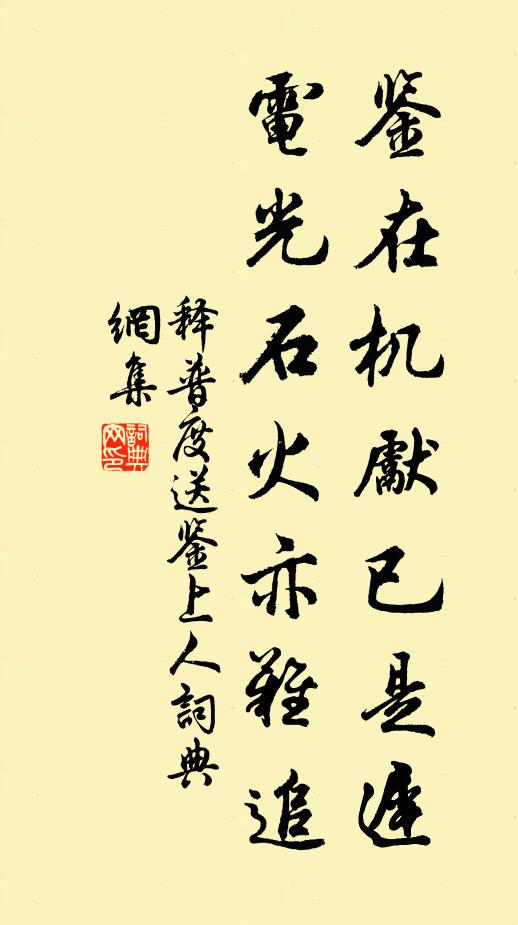 鉴在机献已是遲
電光石火亦難追
释普度送鉴上人詞典
網集
詞典网印